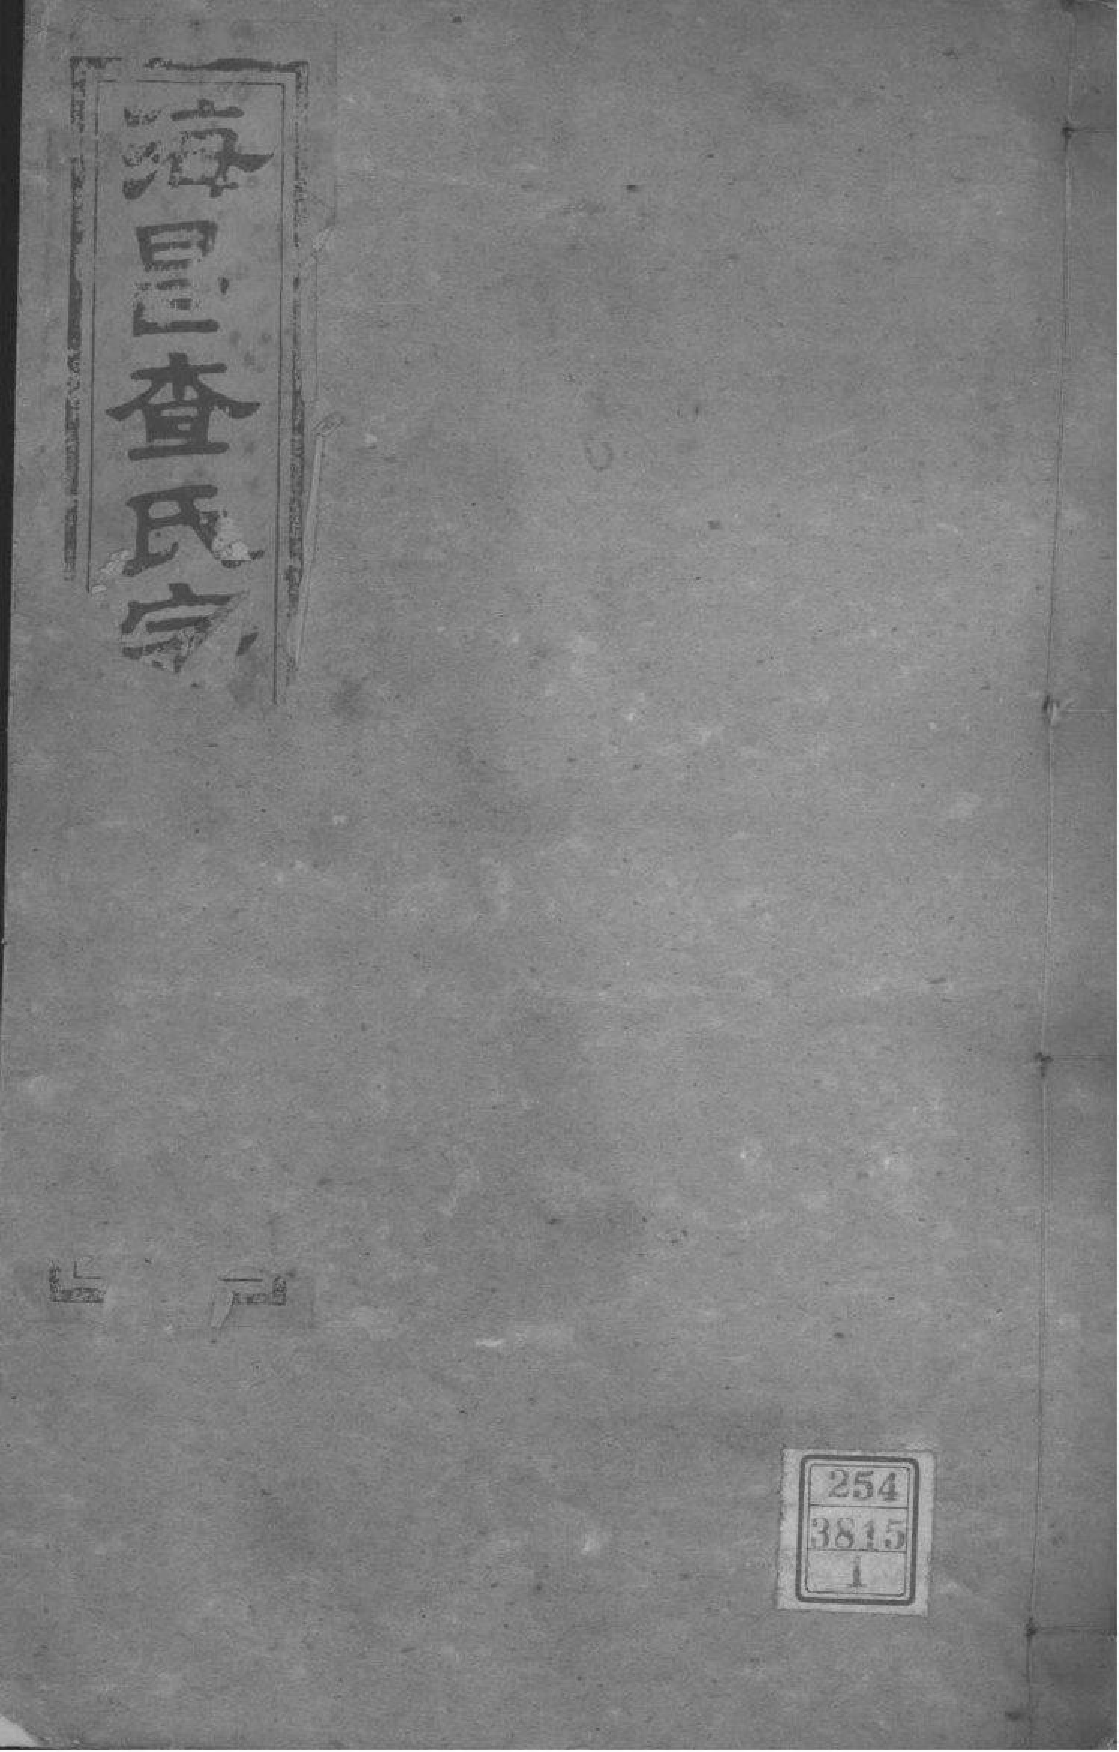 海昌查氏宗
254
3815
1